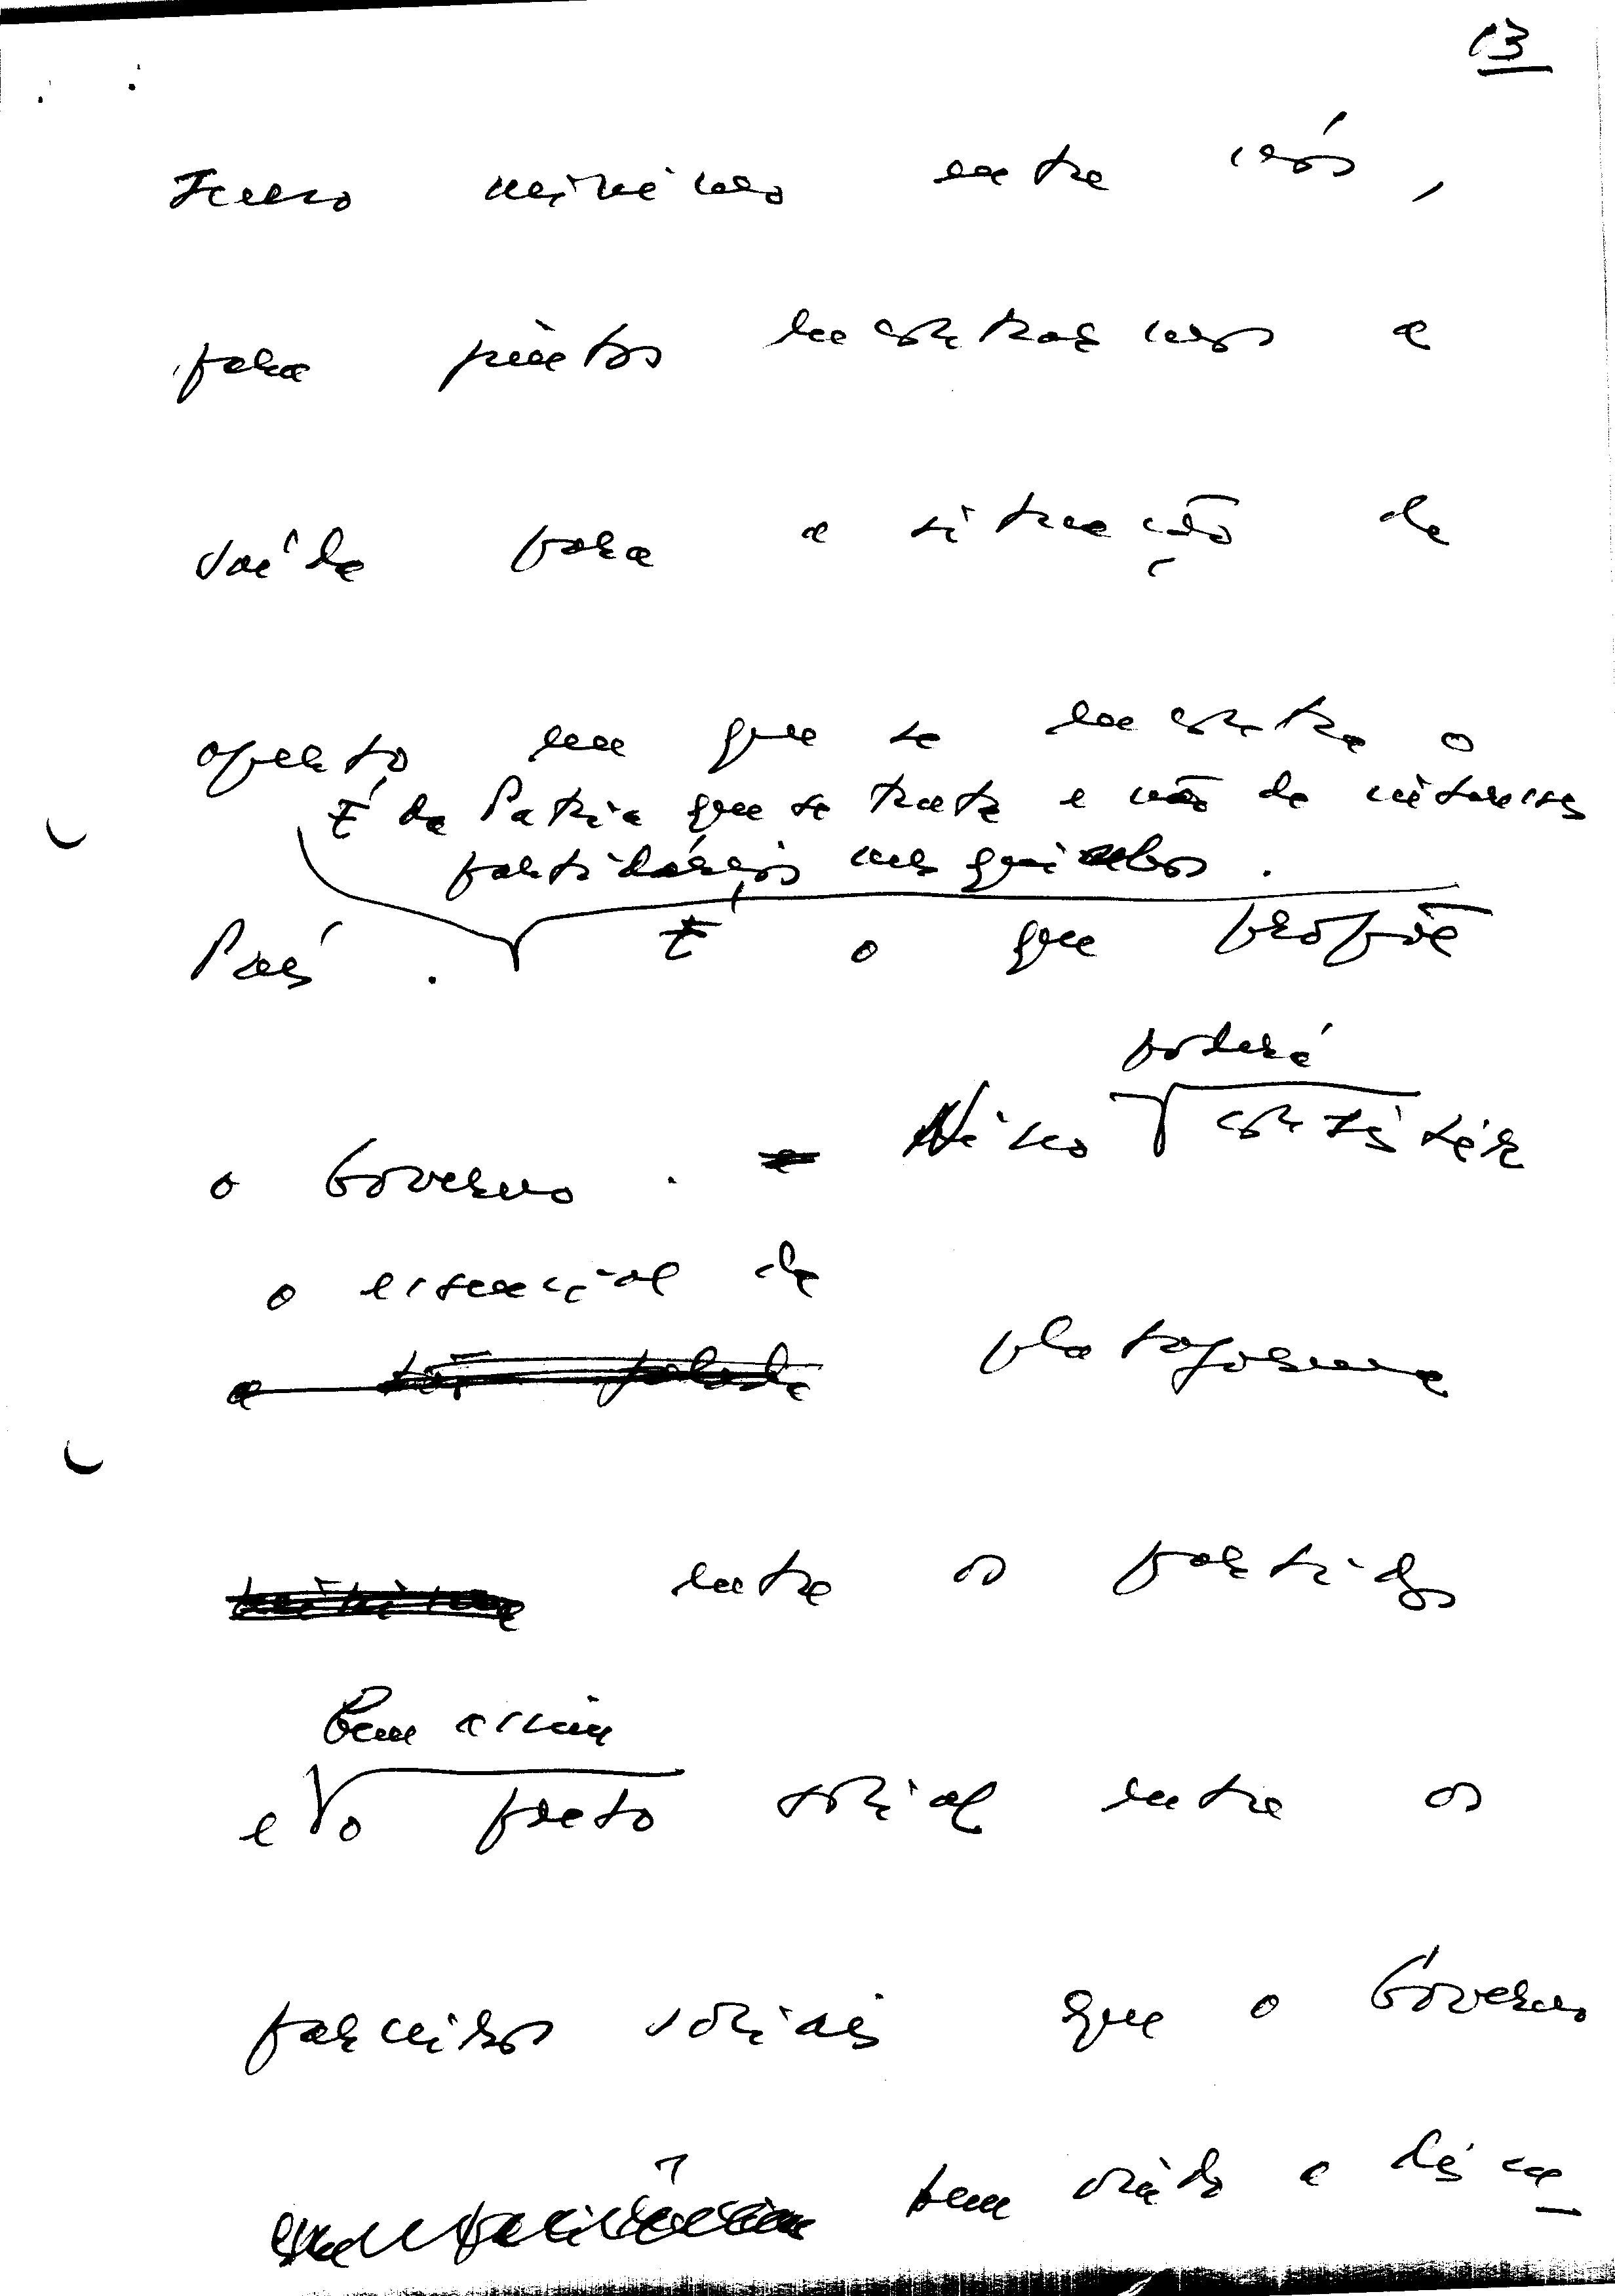 13
mínimo entre nós,
para juntos encontrarmos a
saída para a situação de
aperto em que se encontra o
É da Patria que se trata e não de interesses
partidários mesquinhos.
País. É o que propõe
poderá
o Governo. Nisso consistir
o essencial da
plataforma
entre os partidos
Bem assim
e o pacto social entre os
parceiros sociais que o Governo
tem vindo a disca